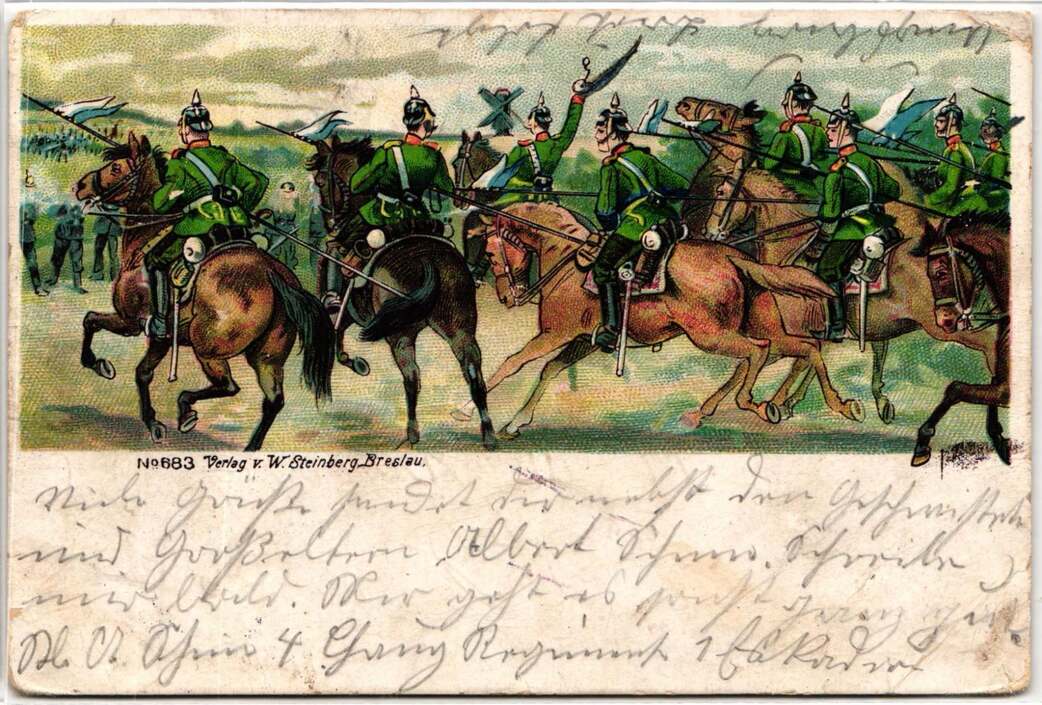 No 683 Verlag v. W. Steinberg, Breslau.
Viele Grüße sendet dir nebst den Geschwistern
und Großeltern Albert Schreibe
mir bald. Mir geht es sonst ganz gut
A. 4 Regiment 1 Eskadron